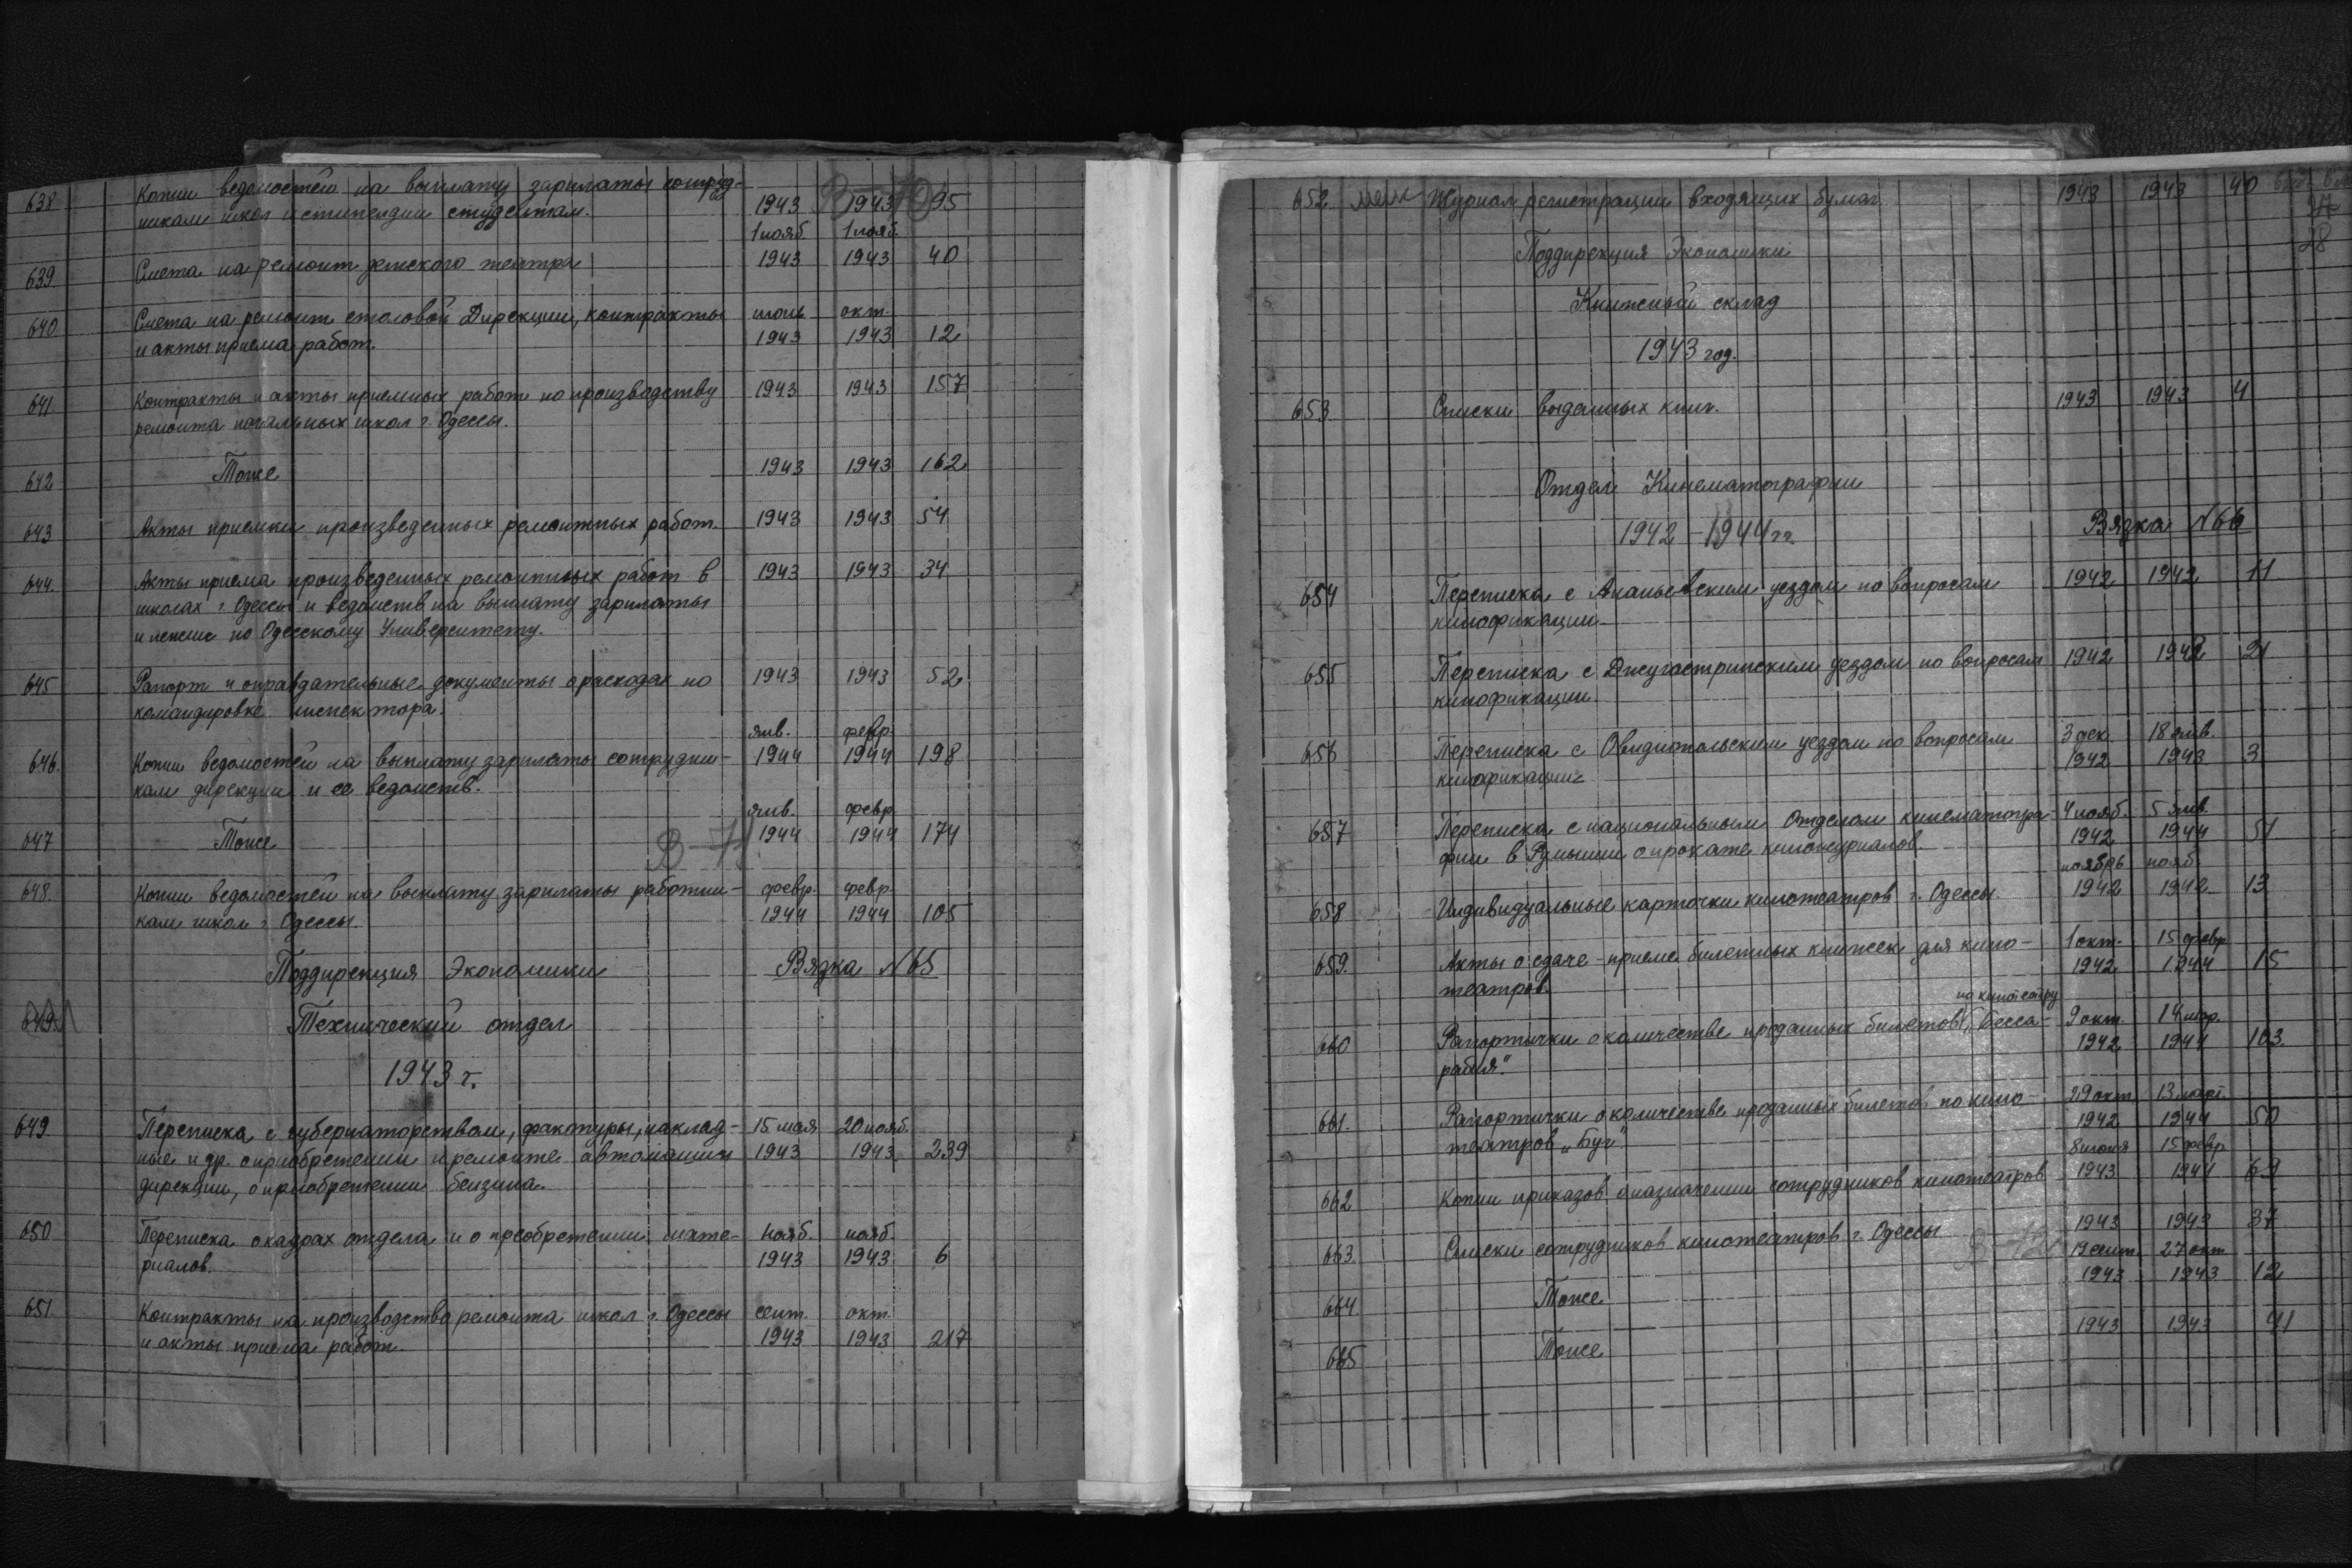 638 Копии ведомостей на выплату зарплаты сотруд-
никам школ и стипендии студентам. 1943 1943 95
1 нояб. 1 нояб.
639 Смета на ремонт детского театра 1943 1943 40
640 Смета на ремонт столовой Дирекции, контракты июнь окт.
и акты приема работ. 1943 1943 12
641 Контракты и акты приемных работ по производству 1943 1943 157
ремонта начальных школ г. Одессы.
642 Тоже 1943 1943 162
643 Акты приемки произведенных ремонтных работ. 1943 1943 54
644. Акты приема произведенных ремонтных работ в 1943 1943 34
школах г. Одессы и ведомств на выплату зарплаты
и пенсии по Одесскому Университету.
645 Рапорт и оправдательные документы о расходах по 1943 1943 52
командировке инспектора.
янв. февр.
646. Копии ведомостей на выплату зарплаты сотрудни- 1944 1944 198
кам дирекции и ее ведомств.
янв. февр.
647 Тоже 1944 1944 174
В-71
648. Копии ведомостей на выплату зарплаты работни- февр. февр.
кам школ г. Одессы. 1944 1944 105
Поддирекция Экономики Вязка N 65
Технический отдел
1943 г.
649 Переписка с губернаторством, фактуры, наклад- 15 мая 20 нояб.
ные и др. о приобретении и ремонте автомашин 1943 1943 239
дирекции, о приобретении бензина.
650 Переписка о кадрах отдела и о преобретении мате- нояб. нояб.
риалов. 1943 1943 6
651. Контракты на производство ремонта школ г. Одессы сент. окт.
и акты приема работ. 1943 1943 217
652 Журнал регистрации входящих бумаг 1943 1943 40
28
Поддирекция Экономики
Книжный склад
1943 год.
653 Списки выданных книг. 1943 1943 4
Отдел Кинематографии
1942-1944 гг. Вязка N 66
654 Переписка с Ананьевским уездом по вопросам 1942 1942 11
кинофикации.
655 Переписка с Джугастринским уездом по вопросам 1942 1942 21
кинофикации.
656 Переписка с Овидиопольским уездом по вопросам 3 дек. 18 янв.
кинофикации 1942 1943 3
657 Переписка с национальным Отделом кинематогра- 4 нояб. 5 янв.
фии в Румынии о прокате киножурналов. 1942 1944 51
ноябрь нояб.
658 Индивидуальные карточки кинотеатров г. Одессы. 1942 1942 13
659. Акты о сдаче-приеме билетных книжек для кино- 1 окт. 15 февр
театров. 1942 1944 15
по кинотеатру
660 Рапортички о количестве проданных билетов „Бесса- 9 окт. 14 мар.
рабия“. 1942 1944 103.
661. Рапортички о количестве проданных билетов по кино- 29 окт. 13 март.
театров „Буг“. 1942 1944 50
8 июня 15 февр.
662 Копии приказов о назначении сотрудников кинотеатров 1943 1944 69
663. Списки сотрудников кинотеатров г. Одессы 1943 1943 37
19 сент. 27 окт
664. Тоже 1943 1943 12
665 Тоже 1943 1943 41